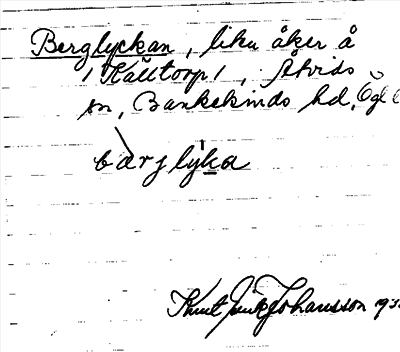 Berglyckan, liten åker å
/Källtorp/, Åtvids
sn, Bankekinds hd, Ögl
bærjlyka
Knut Johansson 193